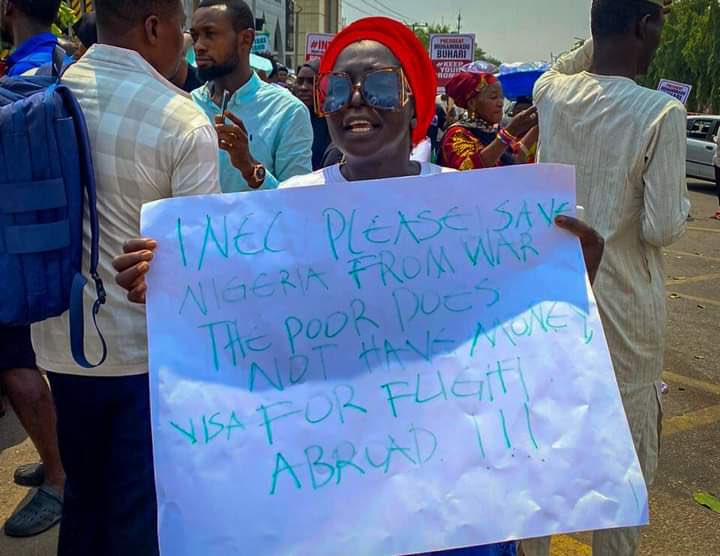 INEC PLEASE SAVE
NIGERIA FROM WAR
THE POOR DOES
NOT HAVE MONEY,
VISA FOR FLIGHT
ABROAD. !!!
PRESIDENT
MUHAMMADU
BUHARI